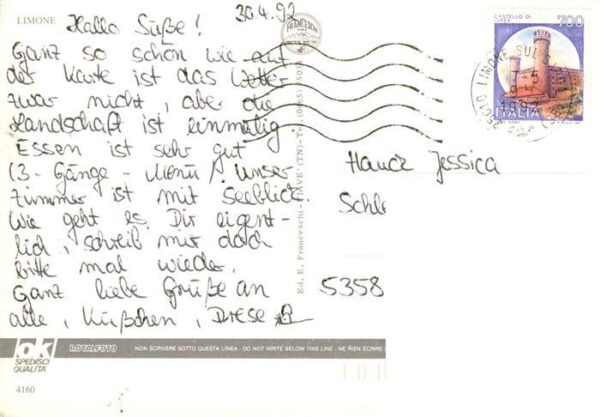 LIMONE
30.4.92
Hallo Süße!
Ganz so schön wie auf
der Karte ist das Wetter
zwar nicht, aber die
Landschaft ist einmalig
Essen ist sehr gut
(3-Gänge-Menü)! Unser
Zimmer ist mit Seeblick.
Wie geht es Dir eigent-
lich, schreib mir doch
bitte mal wieder.
Ganz liebe Grüße an
alle, Küßchen,
Ed. E. Franceschi - PIAVE' (TN) - Te
CASTELLO DI
700
ITALIA
LIMONE SUL
1992
Hauck Jessica
Schl
5358
lok
SPEDISCI
QUALITÀ
ROTALFOTO
NON SCRIVERE SOTTO QUESTA LINEA - DO NOT WRITE BELOW THIS LINE - NE RIEN ÉCRIRE
4160